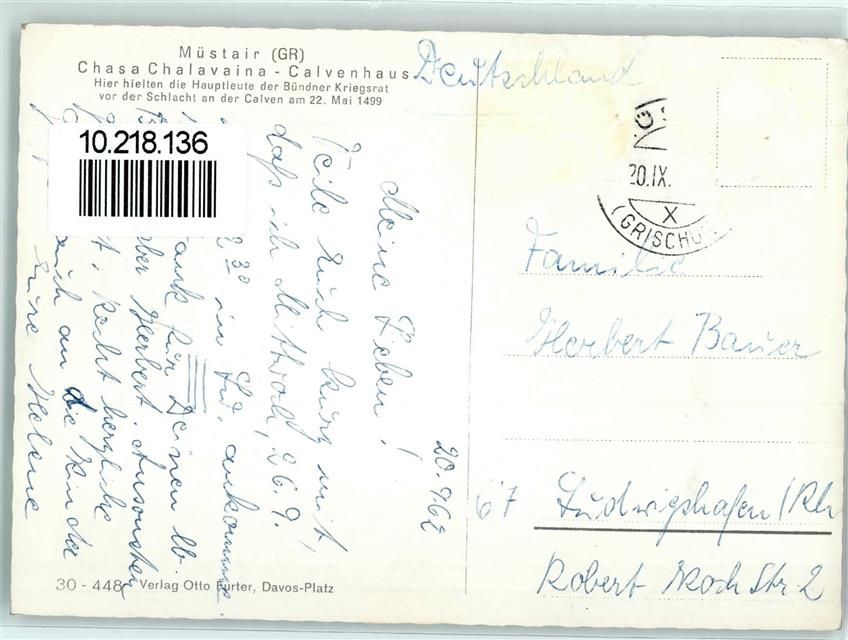 Müstair (GR)
Chasa Chalavaina - Calvenhaus
Hier hielten die Hauptleute der Bündner Kriegsrat
vor der Schlacht an der Calven am 22. Mai 1499
10.218.136
20.9.62
Meine Lieben!
Teile Euch kurz mit,
daß ich Mittwoch, 26.9.
2 30 in Lu. ankomme
für Deinen lb.
Herbert. Ansonsten
Recht herzliche
auch an die Kinder
Eure Helene
Deutschland
20.IX.
X
(GRISCHU
Familie
Herbert Bauer
67 Ludwigshafen/Rh
Robert Koch Str. 2
30 - 448 Verlag Otto Furter, Davos-Platz